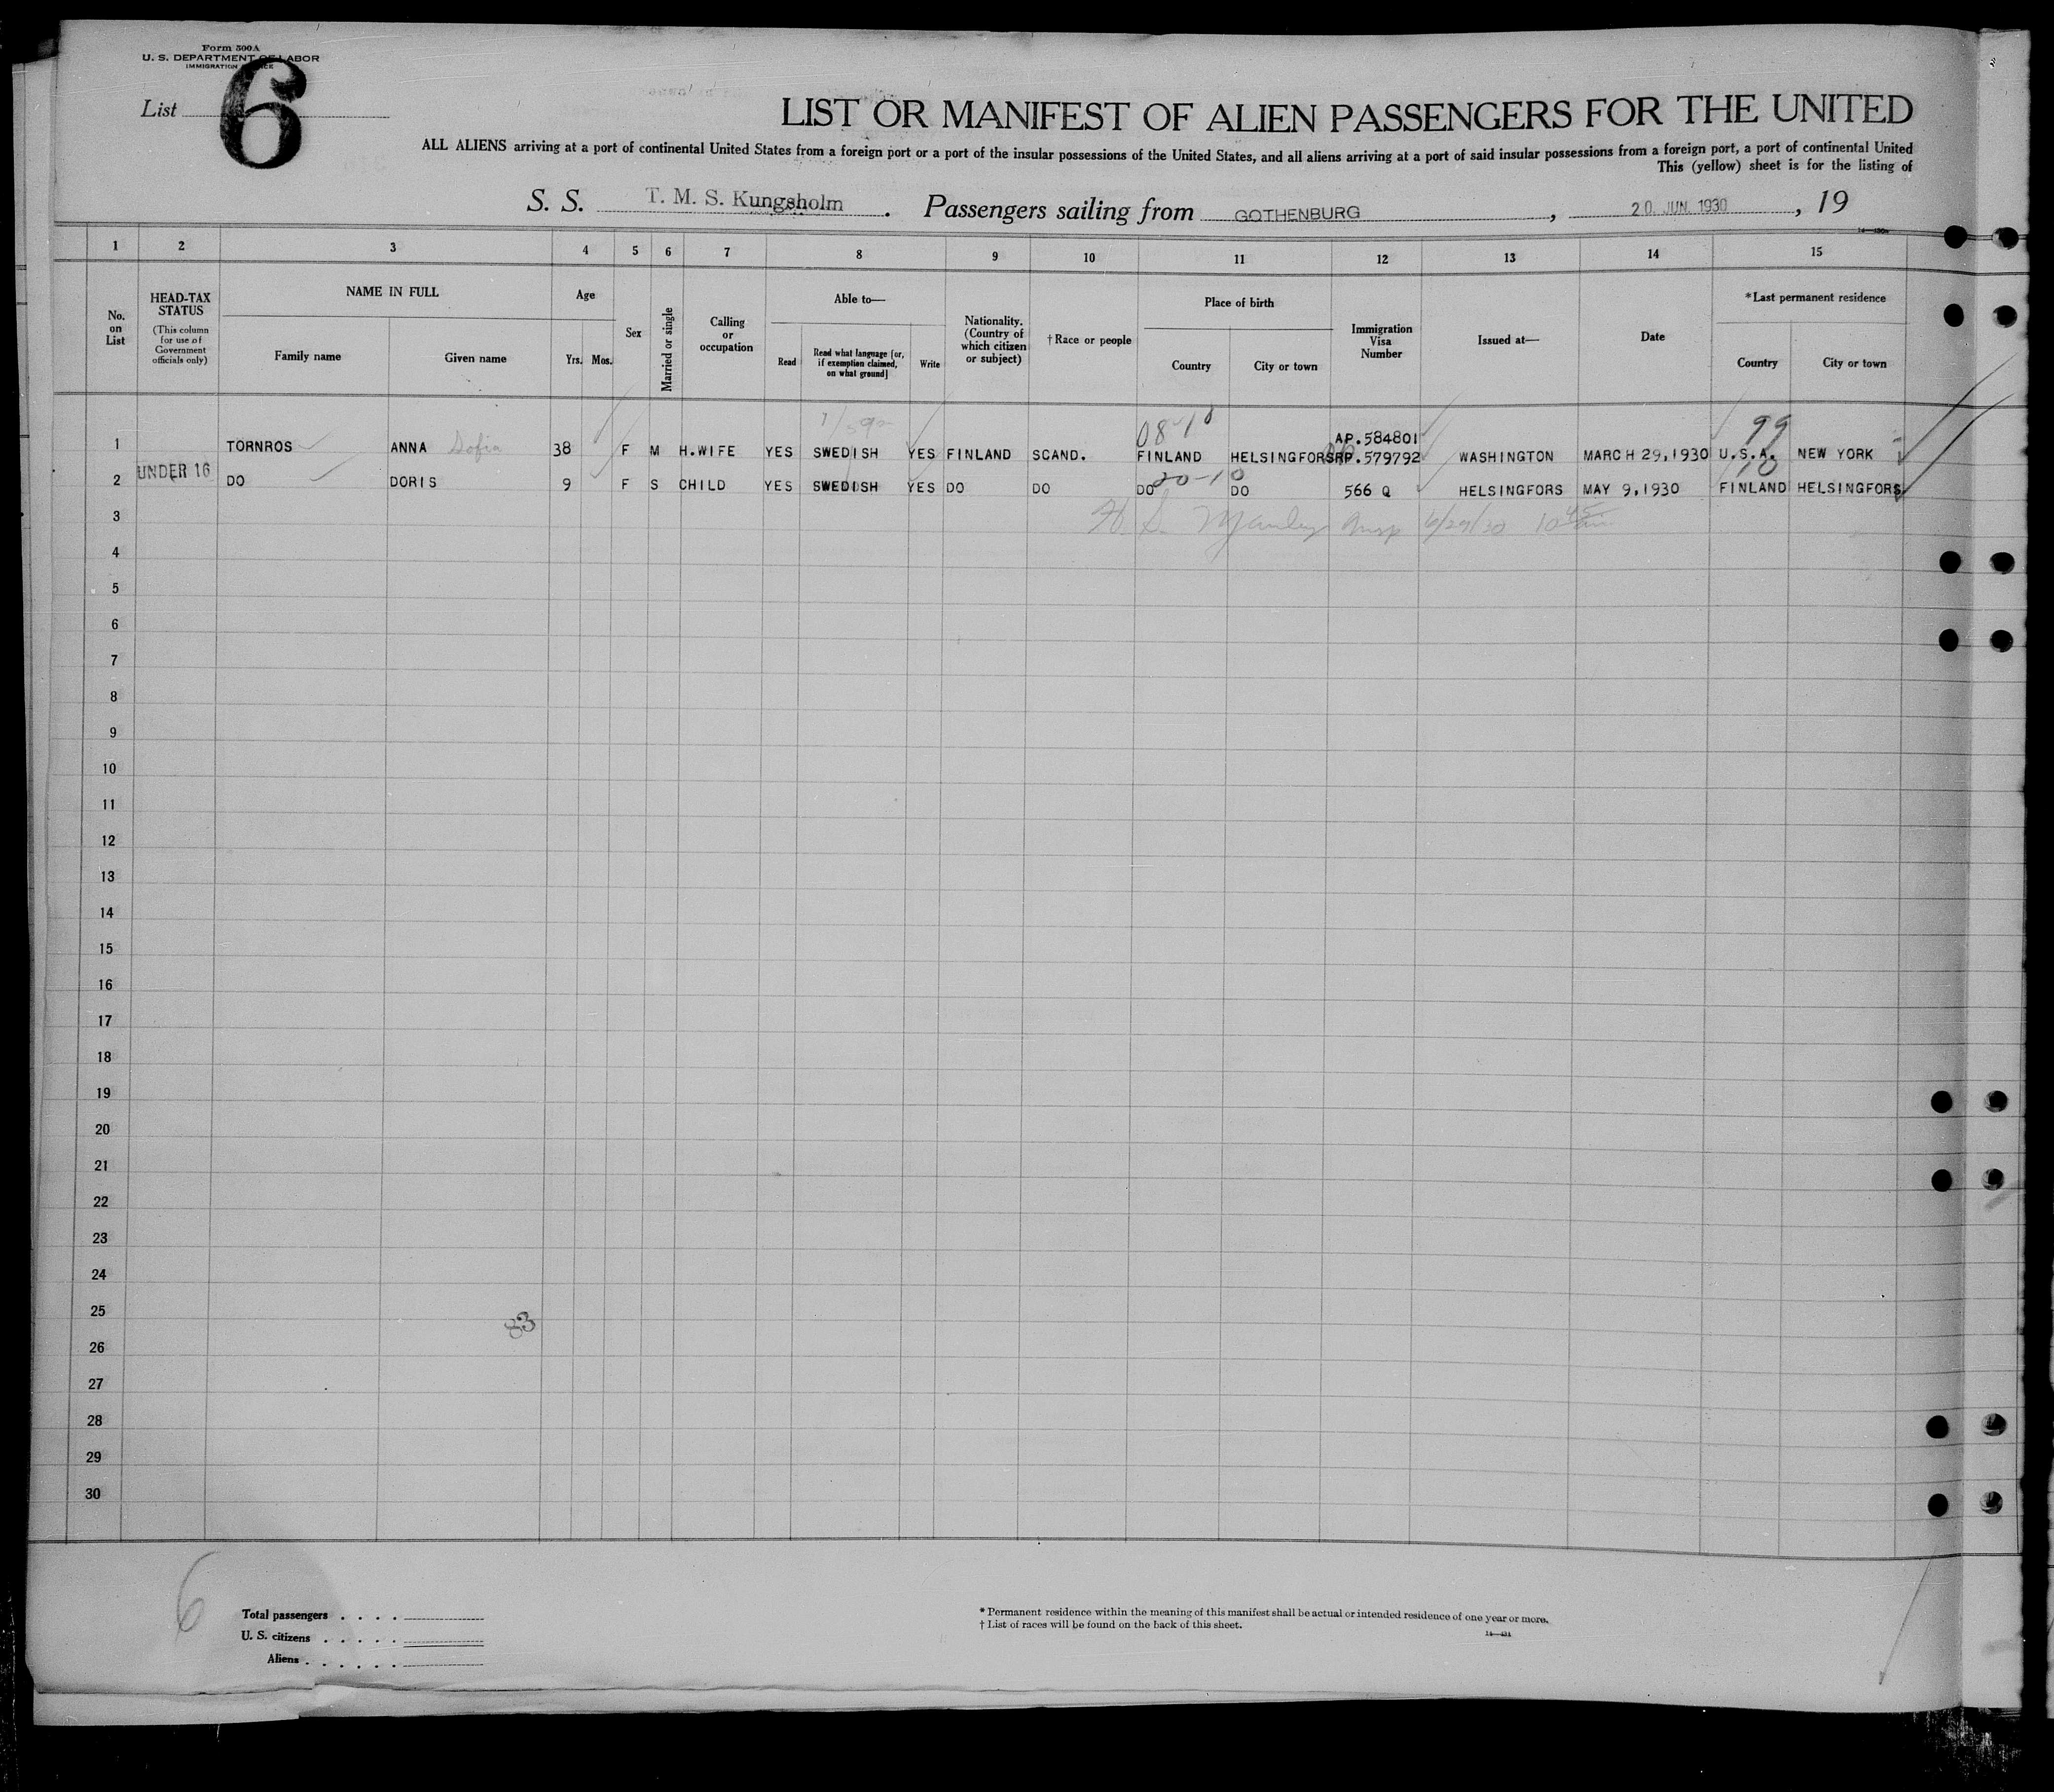 Form 500A
U. S. DEPARTMENT OF LABOR
IMMIGRATION
List 6
LIST OR MANIFEST OF ALIEN PASSENGERS FOR THE UNITED
ALL ALIENS arriving at a port of continental United States from a foreign port or a port of the insular possessions of the United States, and all aliens arriving at a port of said insular possessions from a foreign port, a port of continental United
This (yellow) sheet is for the listing of
S. S. T. M. S. Kungsholm. Passengers sailing from GOTHENBURG, 20. JUN. 1930, 19
1 2 3 4 5 6 7 8 9 10 11 12 13 14 15
No. on List
HEAD-TAX STATUS
(This column for use of Government officials only)
NAME IN FULL
Family name Given name
Age
Yrs. Mos.
Sex
Married or single
Calling or occupation
Able to—
Read
Read what language [or, if exemption claimed, on what ground]
Write
Nationality. (Country of which citizen or subject)
†Race or people
Place of birth
Country City or town
Immigration Visa Number
Issued at—
Date
*Last permanent residence
Country City or town
08-10 99
AP.584801
1 TORNROS ANNA Sofia 38 F M H.WIFE YES SWEDISH YES FINLAND SCAND. FINLAND HELSINGFORS RP.579792 WASHINGTON MARCH 29,1930 U.S.A. NEW YORK
20-10 10
2 UNDER 16 DO DORIS 9 F S CHILD YES SWEDISH YES DO DO DO DO 566 Q HELSINGFORS MAY 9,1930 FINLAND HELSINGFORS
3 6/29/30
4
5
6
7
8
9
10
11
12
13
14
15
16
17
18
19
20
21
22
23
24
25
83
26
27
28
29
30
6
Total passengers . . . .
U. S. citizens . . . . .
Aliens . . . . . .
* Permanent residence within the meaning of this manifest shall be actual or intended residence of one year or more.
† List of races will be found on the back of this sheet.